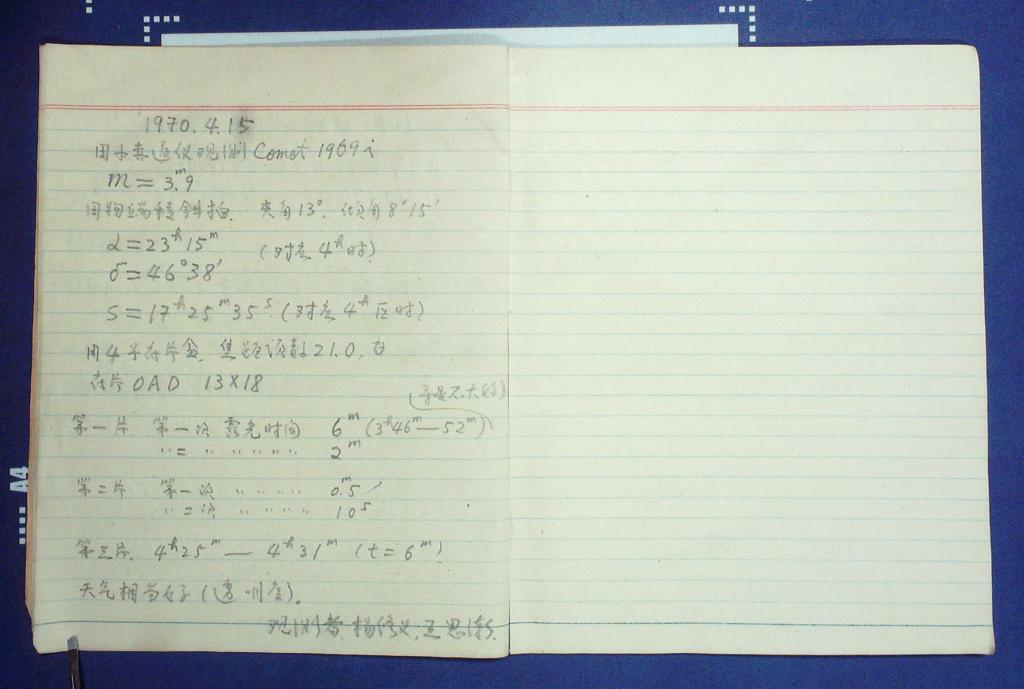 1970.4.15
用小赤道仪观测 Comet 1969 i
m = 3.ᵐ9
用物端棱镜拍. 夹角13°. 倾角8°15′
α = 23ʰ15ᵐ (对应 4ʰ时)
δ = 46°38′
S = 17ʰ25ᵐ35ˢ (对应 4ʰ区时)
用4 底片盒. 焦距读数21.0,
底片 OAD 13×18
不大好)
第一片 第一次 露光时间 6ᵐ (3ʰ46ᵐ—52ᵐ)
〃二 〃 〃 〃 〃 2ᵐ
第二片 第一次 〃 〃 〃 〃 0.ᵐ5
〃二次 〃 〃 〃 〃 10ˢ
第三片. 4ʰ25ᵐ — 4ʰ31ᵐ (t = 6ᵐ)
天气相当好 (透明度)。
观测者. 杨修义, 王思潮.
A4